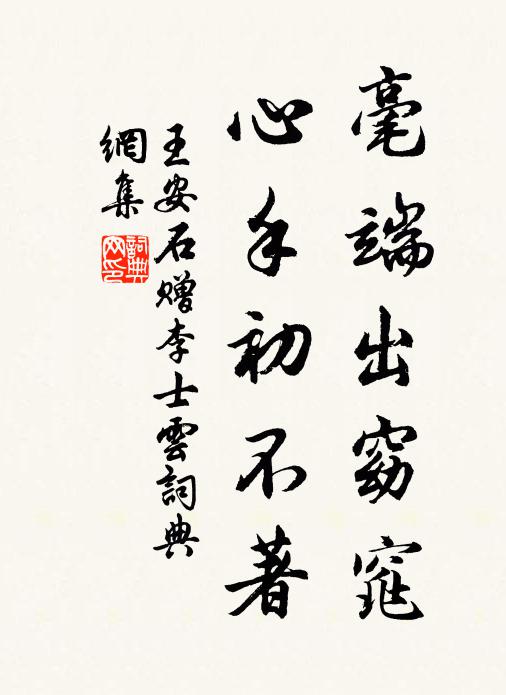 毫端出窈窕
心手初不著
王安石赠李士雲詞典
網集
詞典网印